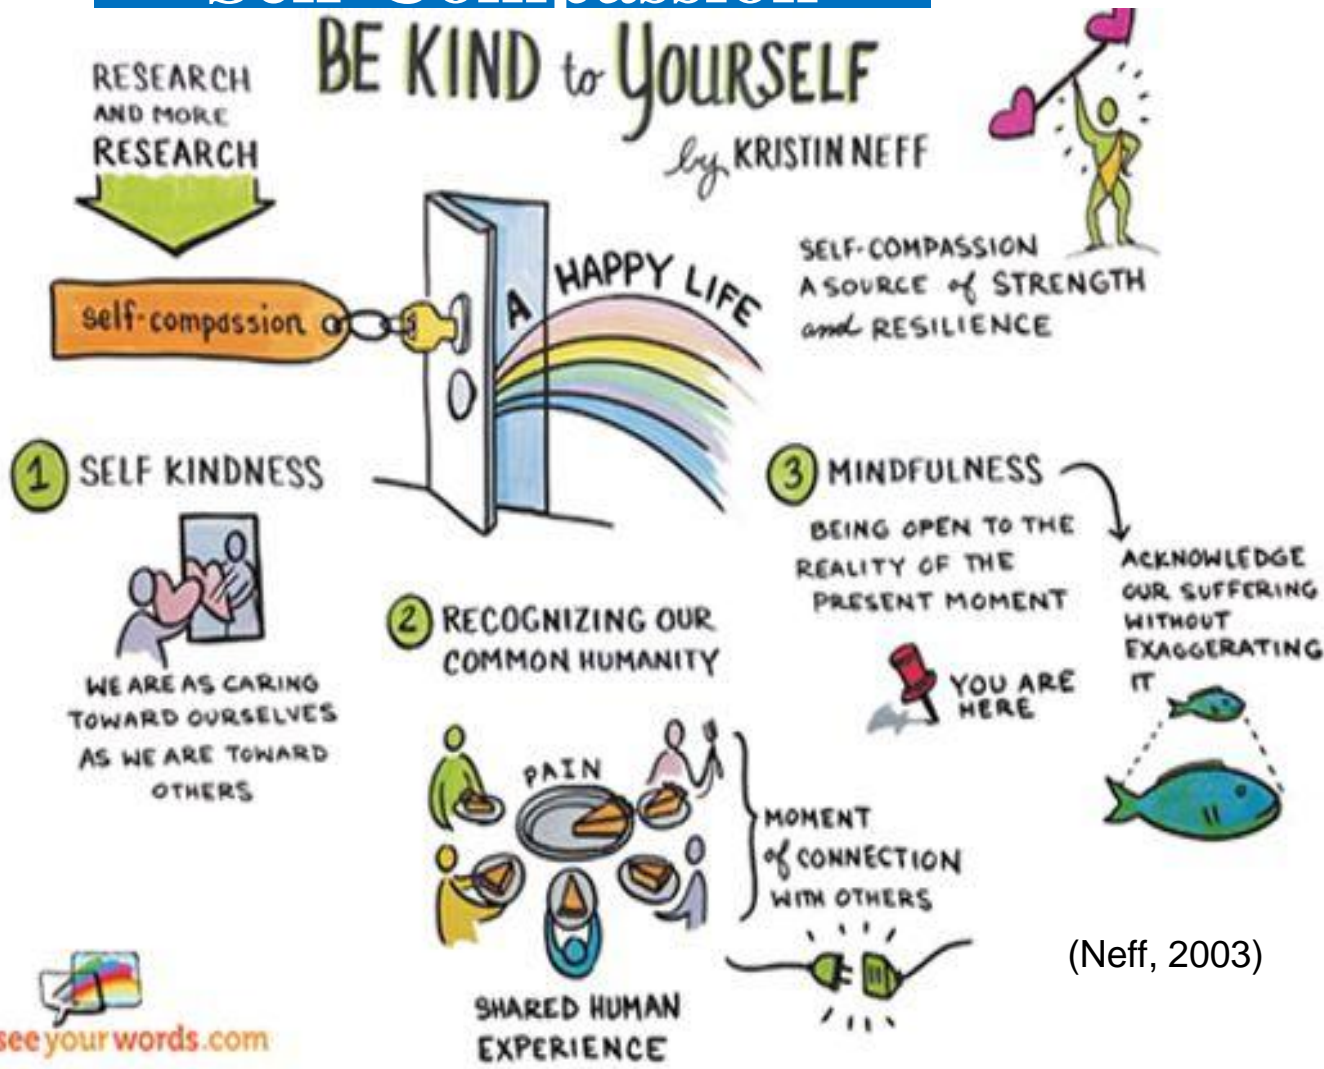 Self-Compassion
BE KIND to YOURSELF
by KRISTIN NEFF
RESEARCH
AND MORE
RESEARCH
self-compassion
A HAPPY LIFE
SELF-COMPASSION
A SOURCE of STRENGTH
and RESILIENCE
1 SELF KINDNESS
WE ARE AS CARING
TOWARD OURSELVES
AS WE ARE TOWARD
OTHERS
2 RECOGNIZING OUR
COMMON HUMANITY
PAIN
MOMENT
of CONNECTION
WITH OTHERS
SHARED HUMAN
EXPERIENCE
3 MINDFULNESS
BEING OPEN TO THE
REALITY OF THE
PRESENT MOMENT
YOU ARE
HERE
ACKNOWLEDGE
OUR SUFFERING
WITHOUT
EXAGGERATING
IT
(Neff, 2003)
seeyourwords.com